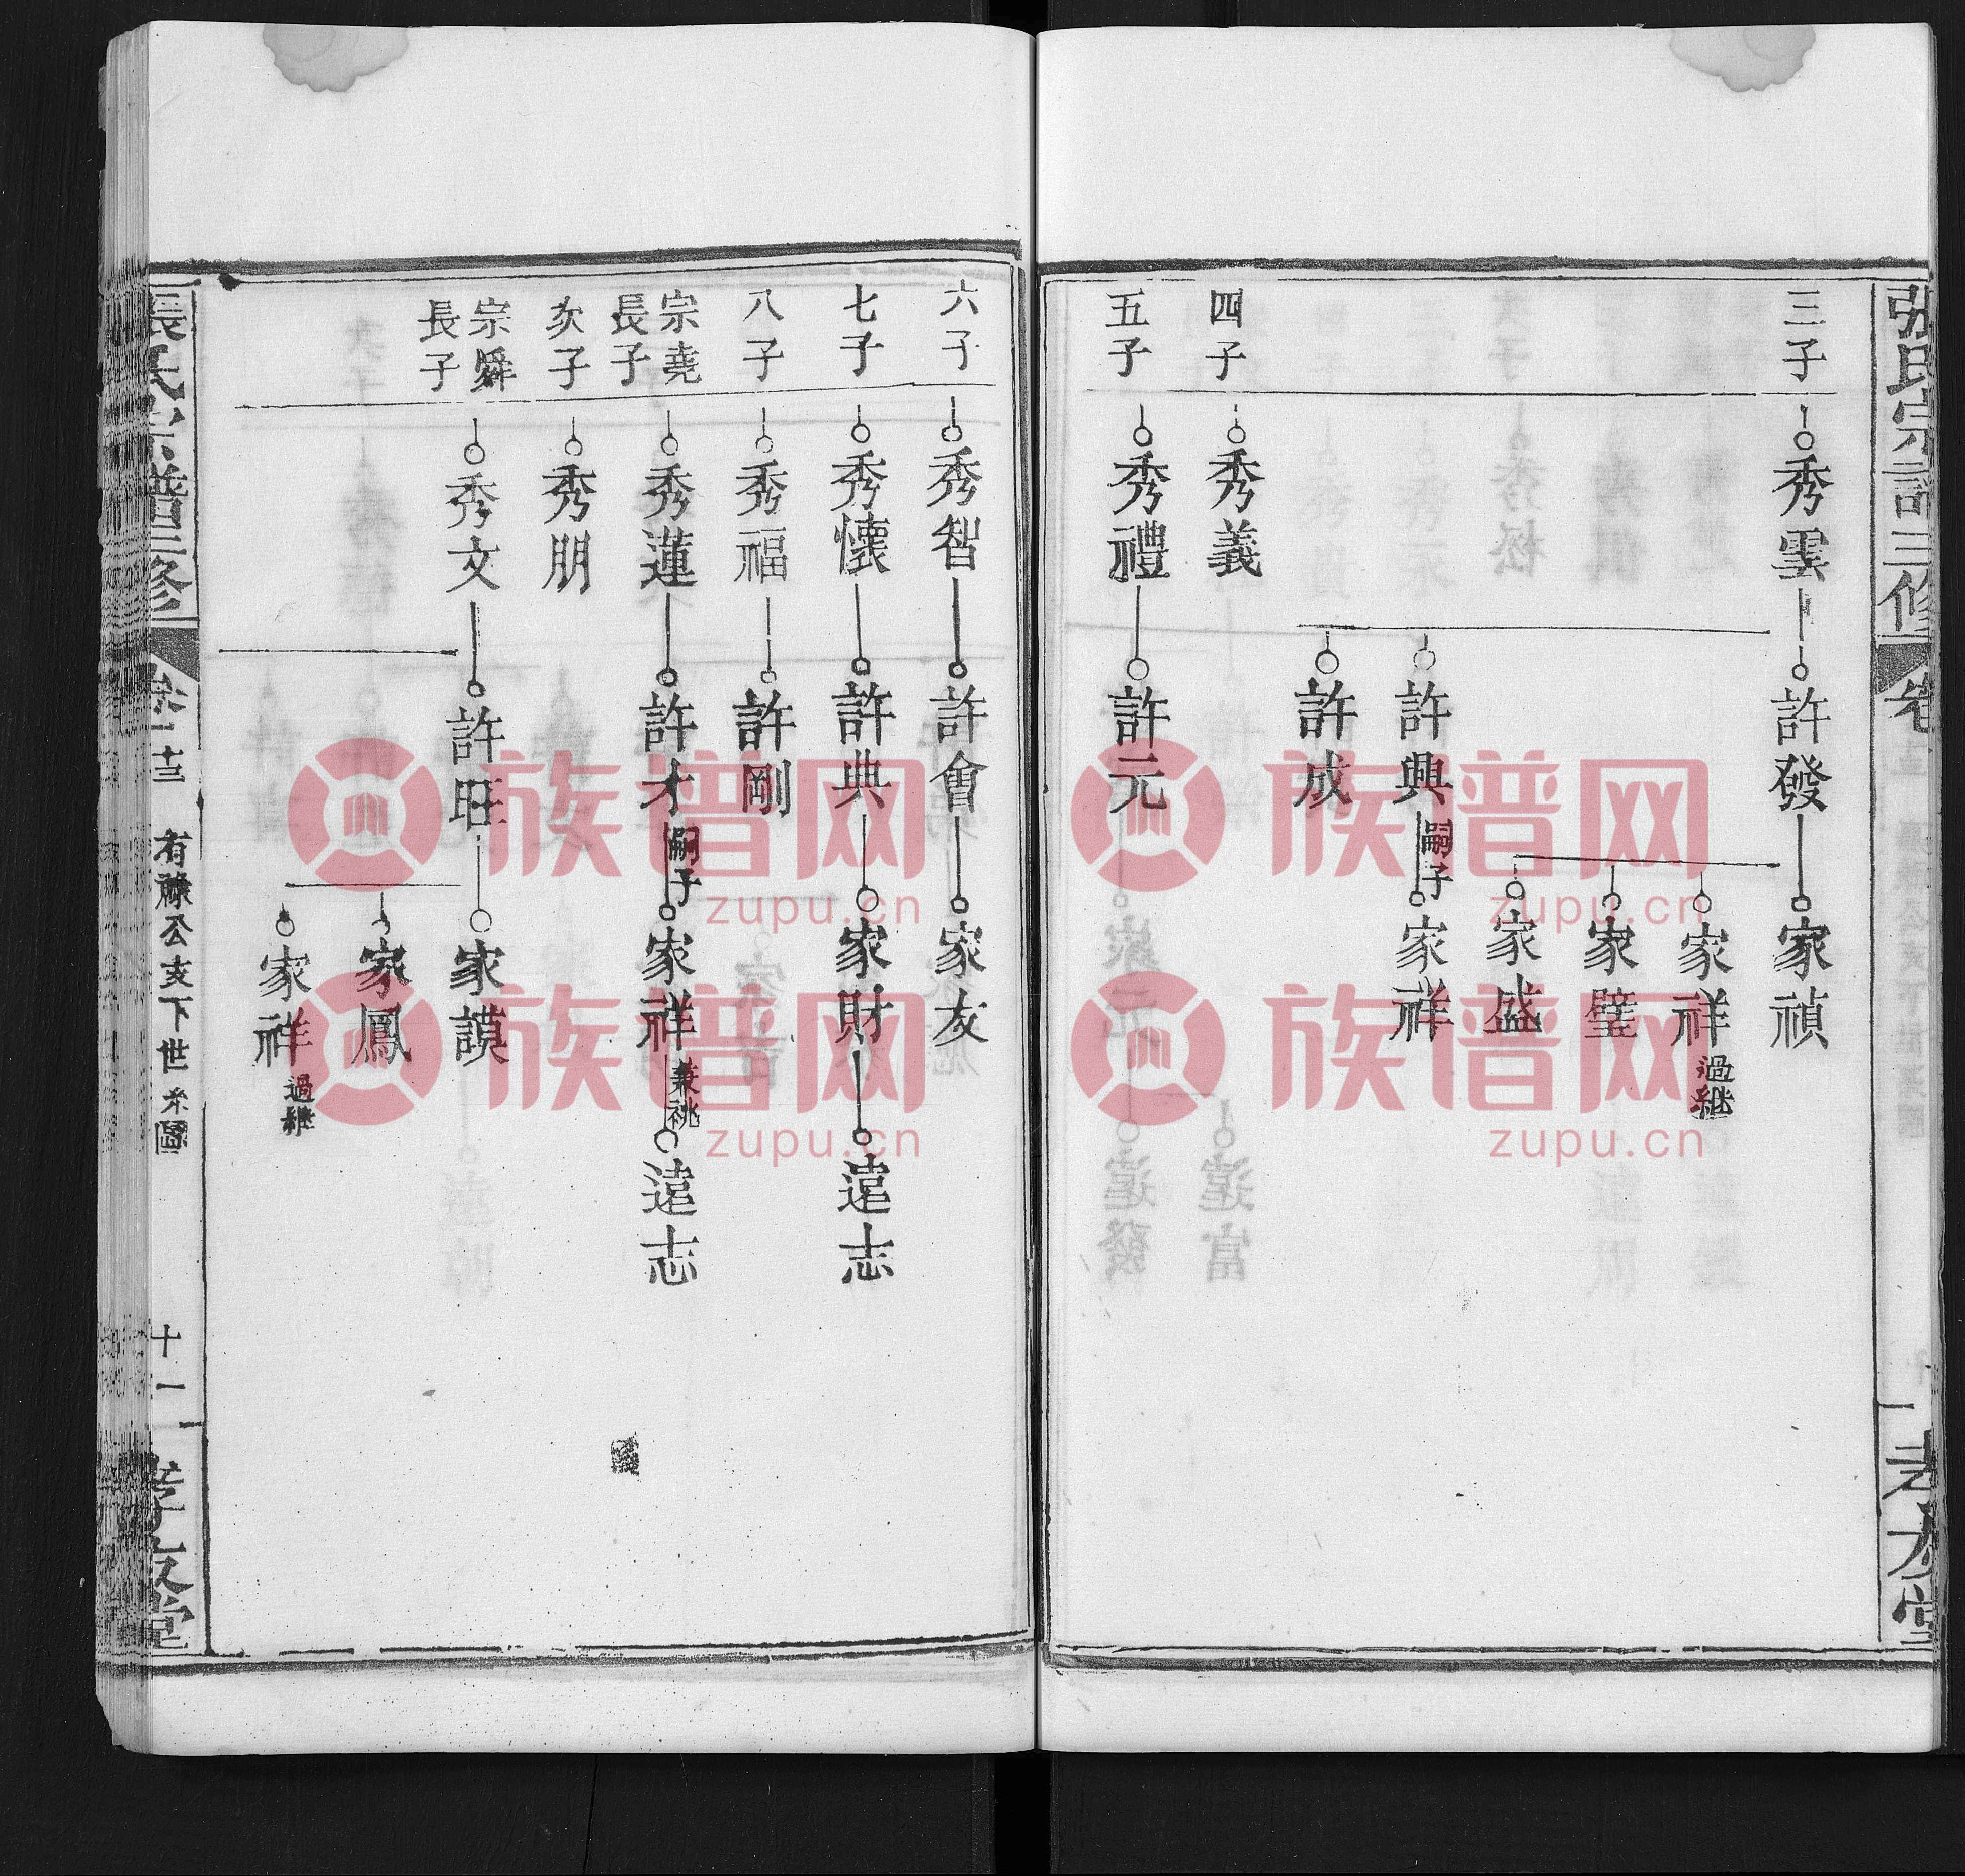 張氏宗譜三修
卷
孝友堂
三子
秀雲
許發
家禎
家祥 過継
家璧
家盛
許興 嗣子
家祥
許成
四子
秀義
五子
秀禮
許元
六子
秀智
許會
家友
七子
秀懷
許典
家財
遠志
八子
秀福
許剛
宗堯
長子
秀蓮
許才 嗣子
家祥 兼祧
遠志
次子
秀朋
宗舜
長子
秀文
許旺
家謨
家鳳
家祥 過継
張氏宗譜三修
有祿公支下世系圖
十一
孝友堂
族谱网
zupu.cn
族谱网
zupu.cn
族谱网
zupu.cn
族谱网
zupu.cn